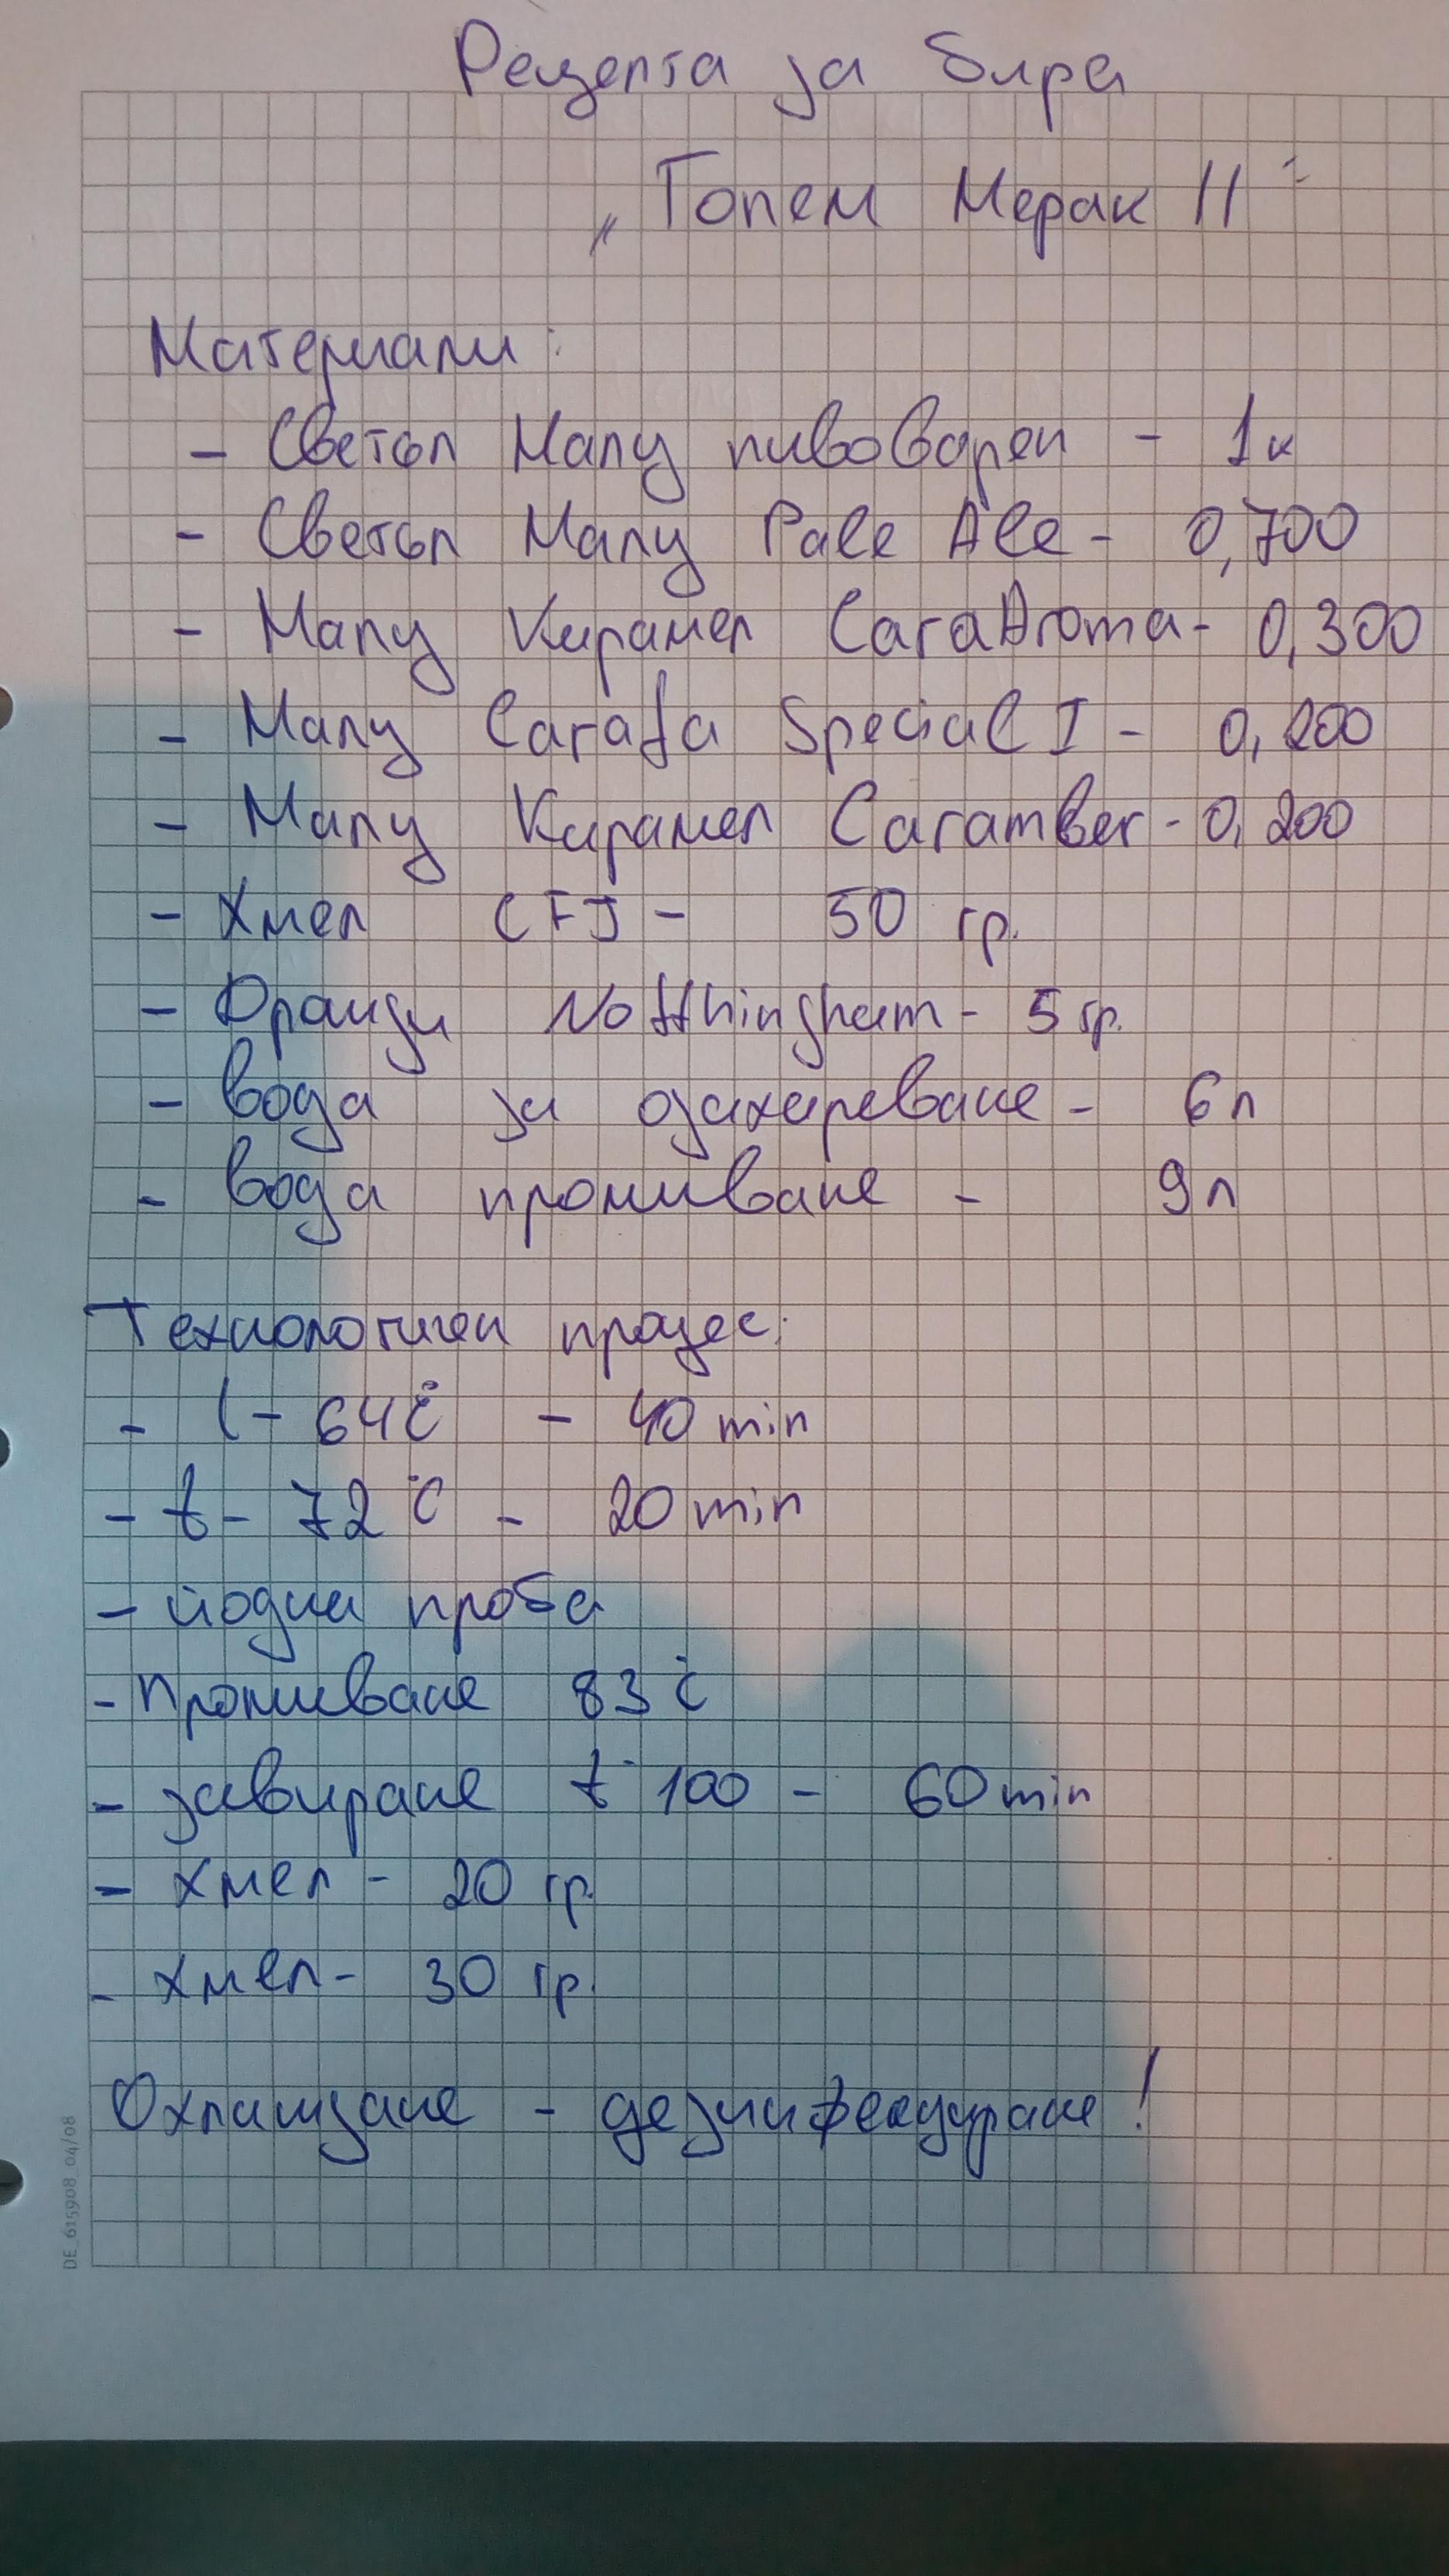 Рецепта за бира
„Топем Мерак II“
Материали:
- Светъл Малц пивоварен - 1к
- Светъл Малц Pale Ale - 0,700
- Малц Карамел CaraAroma - 0,300
- Малц Carafa Special I - 0,200
- Малц Карамел Caramber - 0,200
- Хмел CFJ - 50 гр.
- Дрожди Notthingham - 5 гр.
- вода за озахаряване - 6л
- вода промиване - 9л
Технологичен процес:
- t - 64°C - 40 min
- t - 72°C - 20 min
- йодна проба
- Промиване 83°C
- завиране t° 100 - 60 min
- хмел - 20 гр.
- хмел - 30 гр.
Охлаждане - дезинфекцуране!
DE_615908_04/08